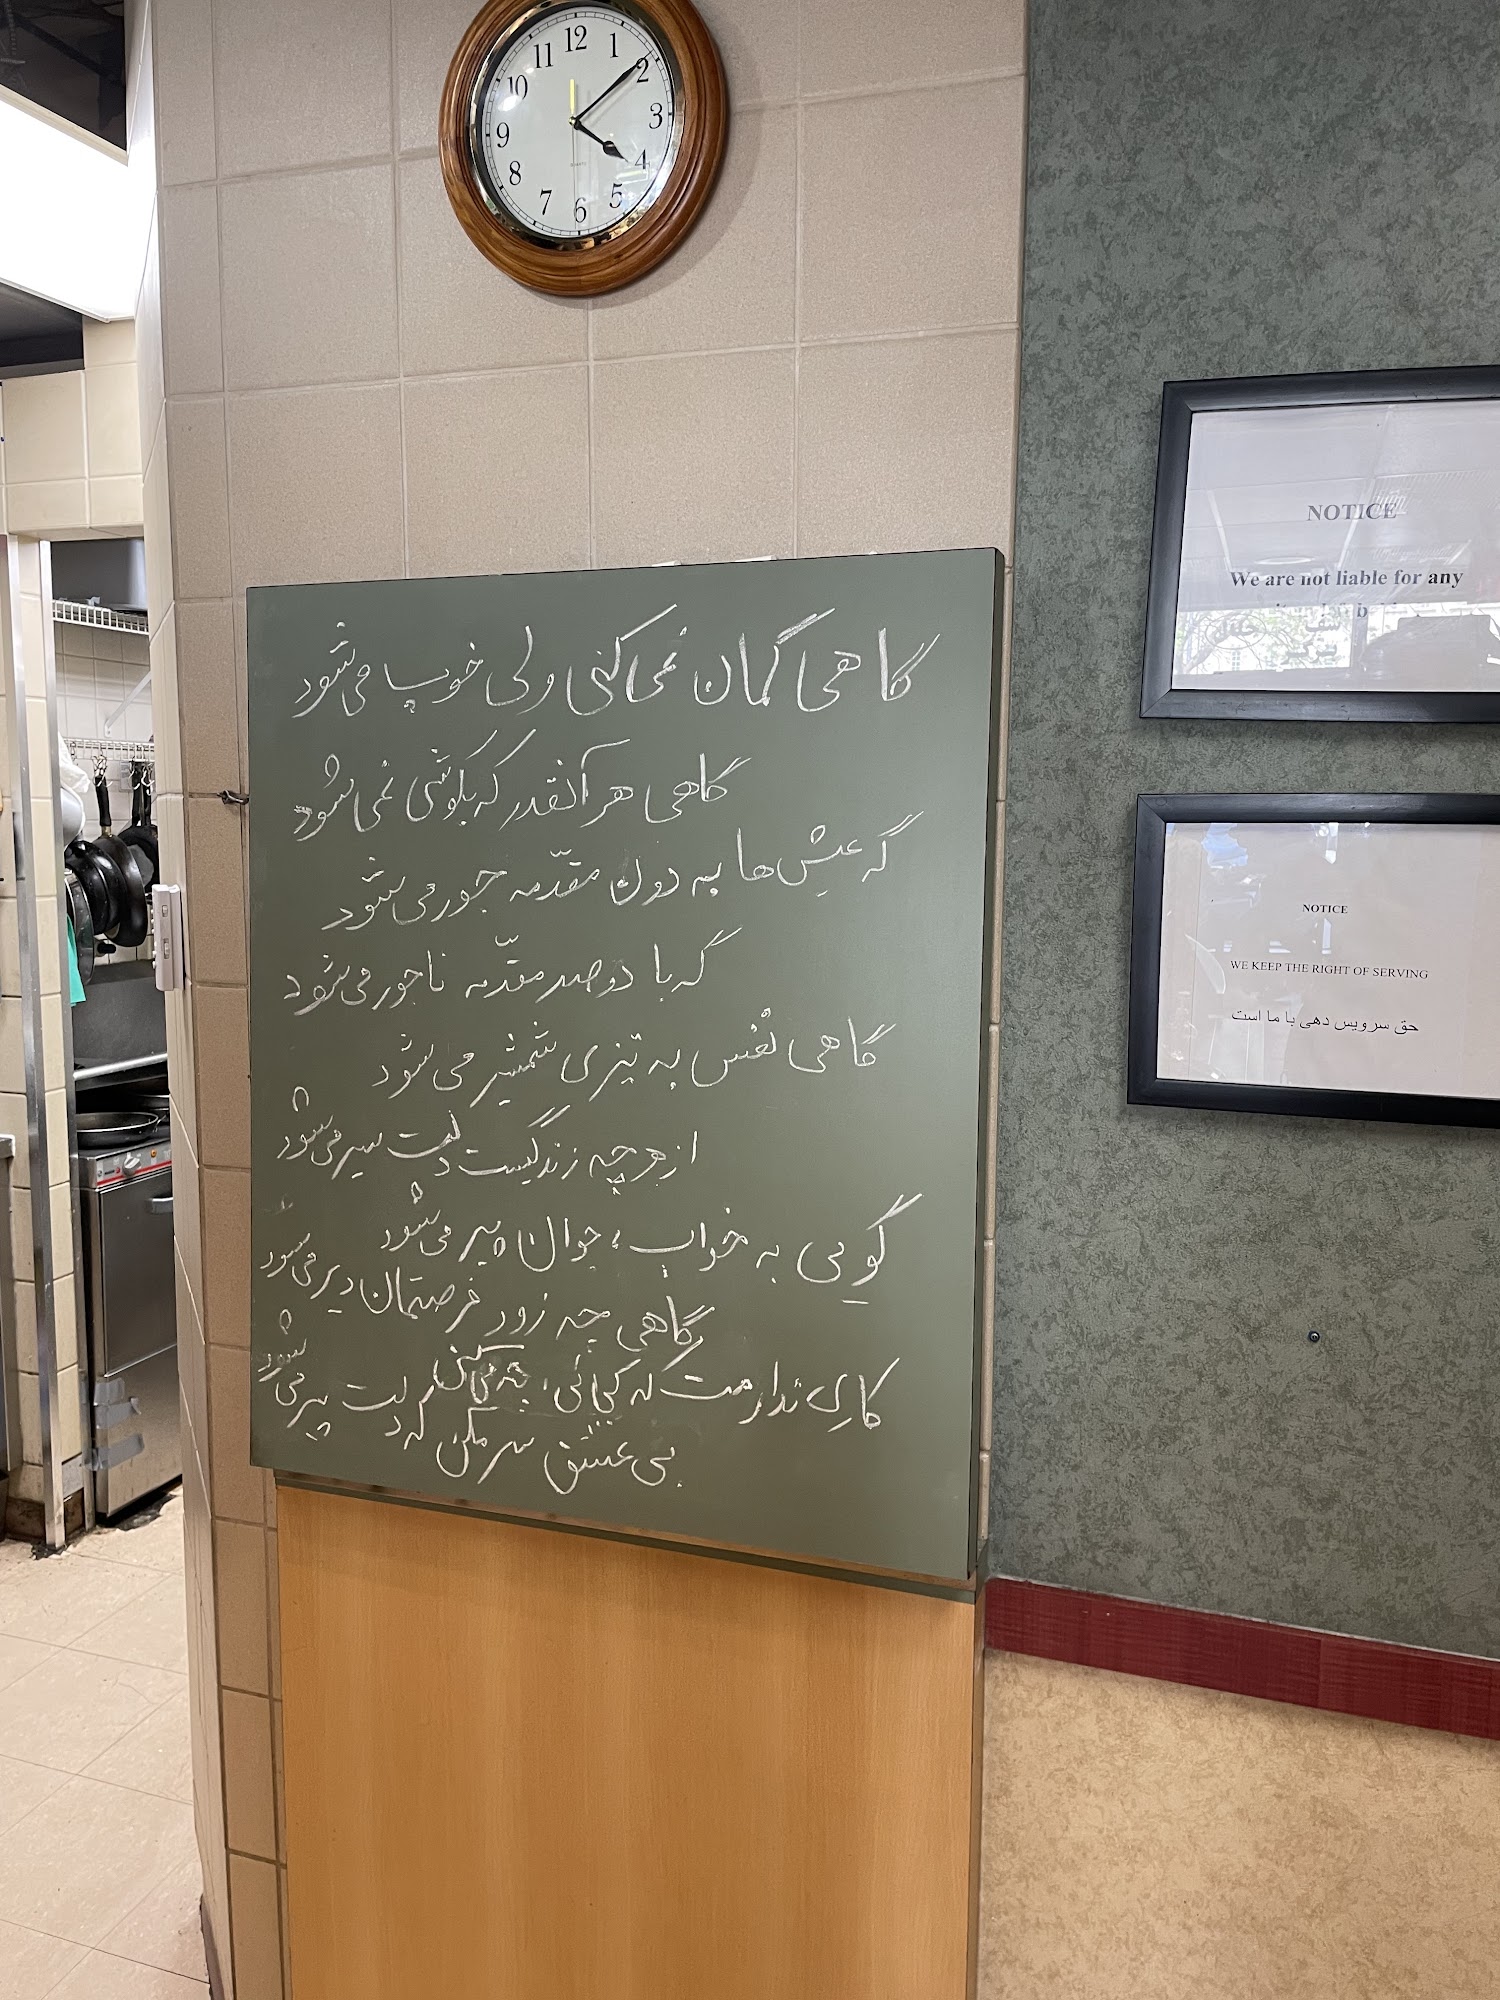 12
1
2
3
4
5
6
7
8
9
10
11
گاهی گمان نمی‌کنی ولی خوب می‌شود
گاهی هر آنقدر که بکوشی نمی‌شود
گه عیش‌ها به دون مقدّمه جور می‌شود
گه با دوصد مقدّمه ناجور می‌شود
گاهی نفس به تیزی شمشیر می‌شود
از هر چه زندگیست دلت سیر می‌شود
گویی به خواب، جوان پیر می‌شود
گاهی چه زود فرصتمان دیر می‌شود
کاری ندارمت که کجائی، چه می‌کنی
بی عشق سر مکن که دلت پیر می‌شود
NOTICE
We are not liable for any
NOTICE
WE KEEP THE RIGHT OF SERVING
حق سرویس دهی با ما است